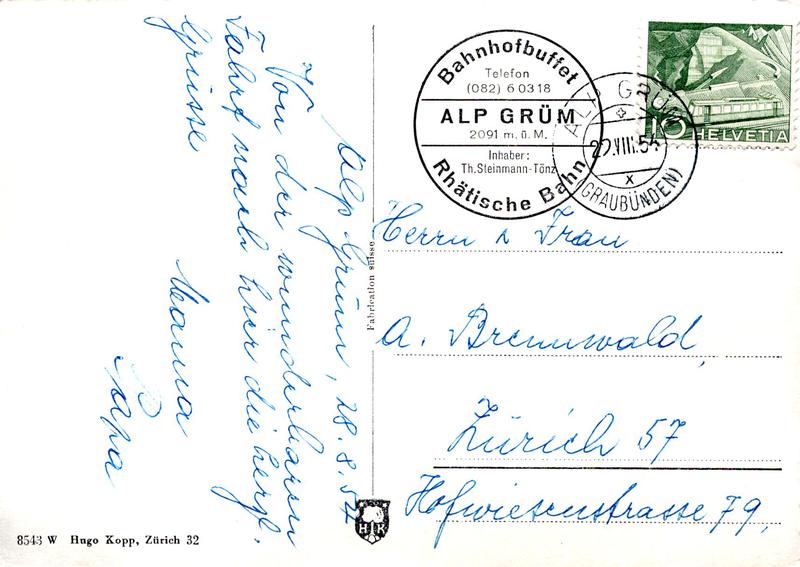 Alp Grüm, 28.8.54
Von der wunderbaren
Fahrt nach hier die herzl.
Grüsse
Mama
Papa
Bahnhofbuffet
Telefon
(082) 6 03 18
ALP GRÜM
2091 m. ü. M.
Inhaber:
Th. Steinmann-Tönz
Rhätische Bahn
ALP GRÜM
VIII.54
X
(GRAUBÜNDEN)
10 HELVETIA
Herrn & Frau
A. Brennwald,
Zürich 57
Hofwiesenstrasse 79,
Fabrication suisse
HK
8543 W Hugo Kopp, Zürich 32